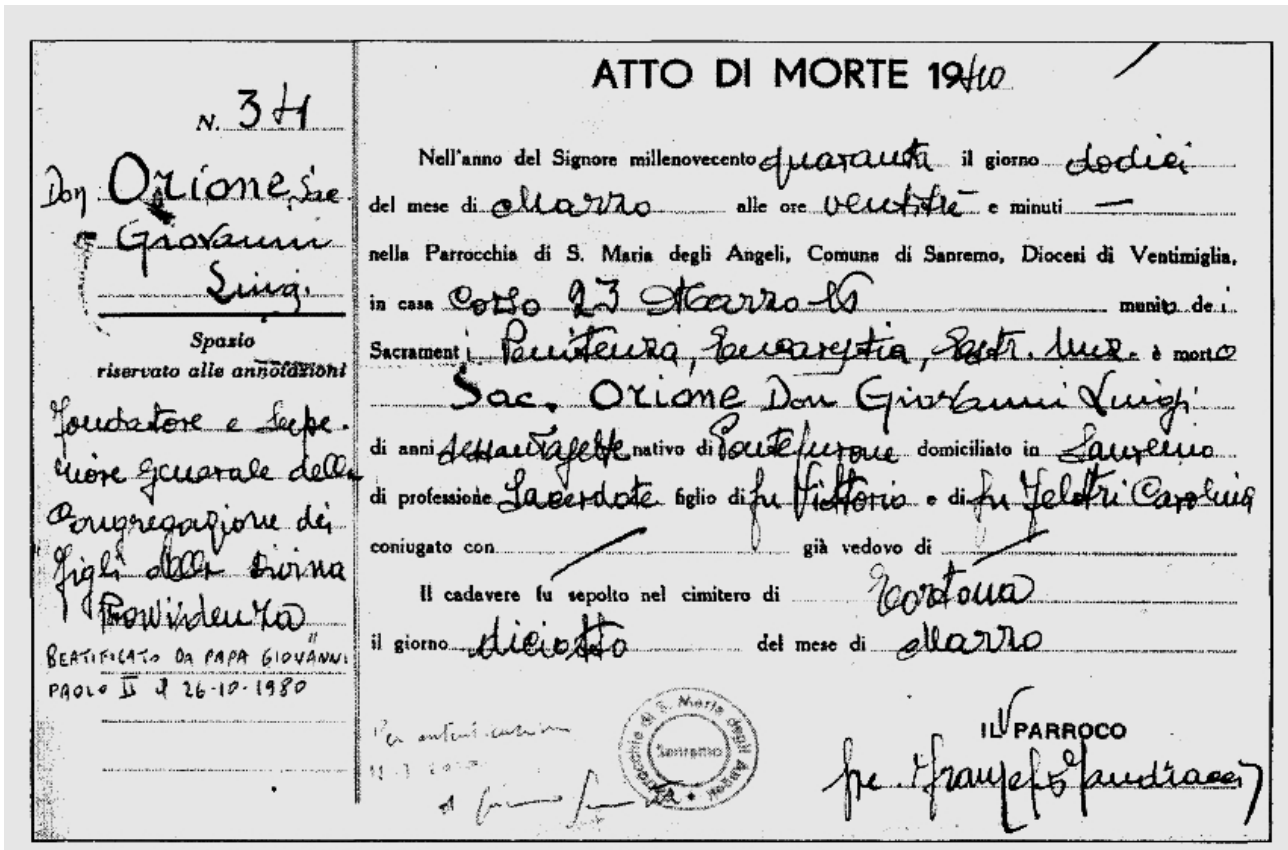 N. 34
Don Orione, Sac.
Giovanni
Luigi
Spazio
riservato alle annotazioni
Fondatore e Supe-
riore Generale della
Congregazione dei
"Figli della Divina
Provvidenza"
BEATIFICATO DA PAPA GIOVANNI
PAOLO II il 26-10-1980
ATTO DI MORTE 1940
Nell'anno del Signore millenovecento quaranta il giorno dodici
del mese di Marzo alle ore ventitrè e minuti —
nella Parrocchia di S. Maria degli Angeli, Comune di Sanremo, Diocesi di Ventimiglia,
in casa Corso 23 Marzo munito dei
Sacramenti Penitenza, Eucarestia, Estr. Unz. è morto
Sac. Orione Don Giovanni Luigi
di anni sessantasette nativo di Pontecurone domiciliato in Sanremo
di professione Sacerdote figlio di fu Vittorio e di fu Feltri Carolina
coniugato con già vedovo di
Il cadavere fu sepolto nel cimitero di Tortona
il giorno diciotto del mese di Marzo
Per autenticazione
Parrocchia di S. Maria degli Angeli
Sanremo
IL V PARROCO